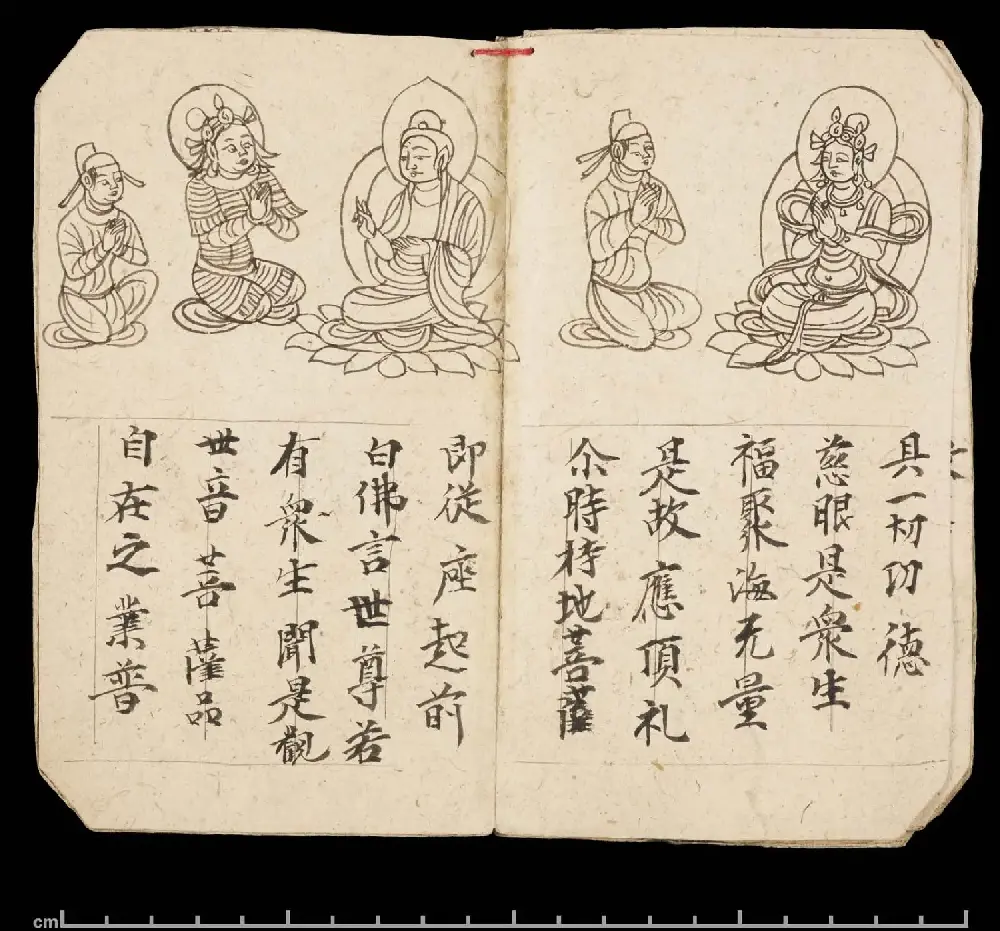 具一切功德
慈眼是衆生
福聚海无量
是故應頂礼
尒時持地菩薩
即從座起前
白佛言世尊若
有衆生聞是觀
世音菩薩品
自在之業普
cm